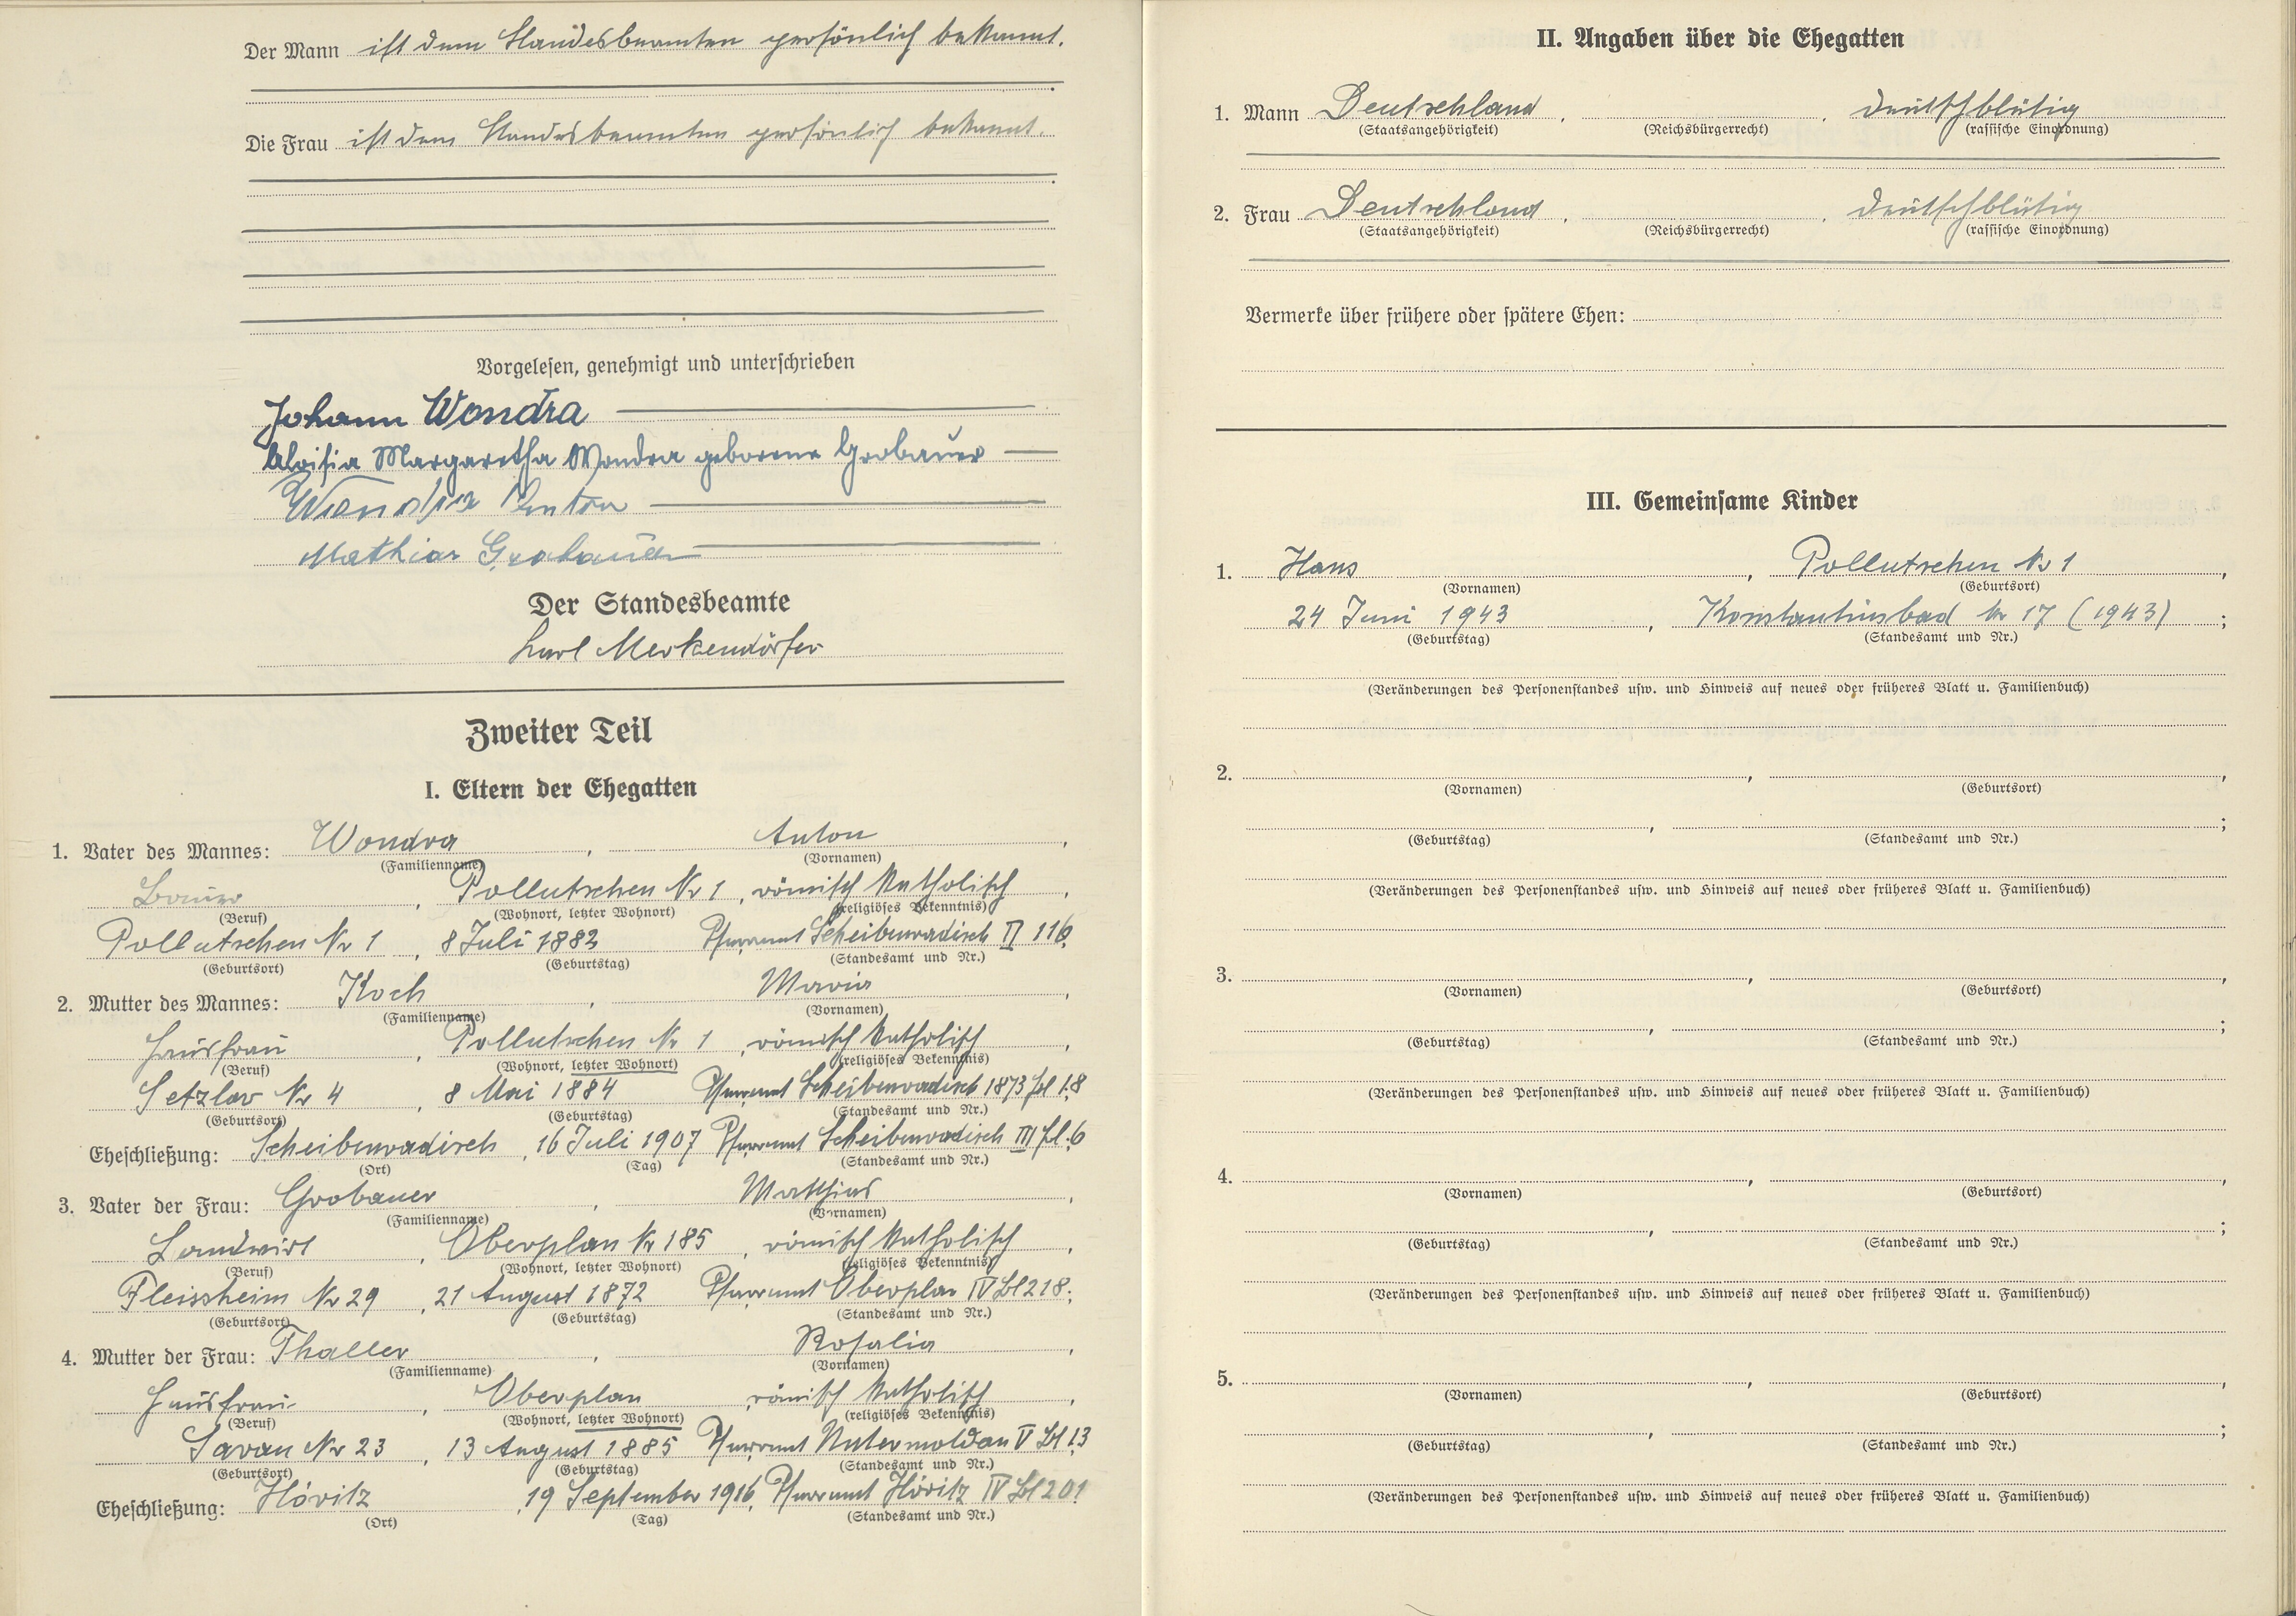 Der Mann ist dem Standesbeamten persönlich bekannt.
Die Frau ist dem Standesbeamten persönlich bekannt.
Vorgelesen, genehmigt und unterschrieben
Johann Wondra
Aloisia Margaretha Wondra geborene Grobauer
Anton
Mathias Grobauer
Der Standesbeamte
Karl Merkendörfer
Zweiter Teil
I. Eltern der Ehegatten
1. Vater des Mannes: Wondra, Anton,
(Familienname) (Vornamen)
Bauer, Pollutschen Nr 1, römisch katholisch,
(Beruf) (Wohnort, letzter Wohnort) (religiöses Bekenntnis)
Pollutschen Nr 1, 8 Juli 1882 Pfarramt Scheibenradisch II 116.
(Geburtsort) (Geburtstag) (Standesamt und Nr.)
2. Mutter des Mannes: Koch, Maria,
(Familienname) (Vornamen)
Hausfrau, Pollutschen Nr 1, römisch katholisch,
(Beruf) (Wohnort, letzter Wohnort) (religiöses Bekenntnis)
Setzlav Nr 4, 8 Mai 1884 Pfarramt Scheibenradisch 1873 fol 18
(Geburtsort) (Geburtstag) (Standesamt und Nr.)
Eheschließung: Scheibenradisch, 16 Juli 1907 Pfarramt Scheibenradisch III fl. 6
(Ort) (Tag) (Standesamt und Nr.)
3. Vater der Frau: Grobauer, Matthias,
(Familienname) (Vornamen)
Landwirt, Oberplan Nr 185, römisch katholisch,
(Beruf) (Wohnort, letzter Wohnort) (religiöses Bekenntnis)
Fleissheim Nr 29, 21 August 1872 Pfarramt Oberplan IV Bl 218;
(Geburtsort) (Geburtstag) (Standesamt und Nr.)
4. Mutter der Frau: Thaller, Rosalia,
(Familienname) (Vornamen)
Hausfrau, Oberplan, römisch katholisch,
(Beruf) (Wohnort, letzter Wohnort) (religiöses Bekenntnis)
Sarau Nr 23, 13 August 1885 Pfarramt Untermoldau V Bl 13
(Geburtsort) (Geburtstag) (Standesamt und Nr.)
Eheschließung: Höritz, 19 September 1916, Pfarramt Höritz IV Bl 201
(Ort) (Tag) (Standesamt und Nr.)
II. Angaben über die Ehegatten
1. Mann Deutschland, , deutschblütig
(Staatsangehörigkeit) (Reichsbürgerrecht) (rassische Einordnung)
2. Frau Deutschland, , deutschblütig
(Staatsangehörigkeit) (Reichsbürgerrecht) (rassische Einordnung)
Vermerke über frühere oder spätere Ehen:
III. Gemeinsame Kinder
1. Hans, Pollutschen Nr 1,
(Vornamen) (Geburtsort)
24 Juni 1943, Konstantinsbad Nr 17 (1943);
(Geburtstag) (Standesamt und Nr.)
(Veränderungen des Personenstandes usw. und Hinweis auf neues oder früheres Blatt u. Familienbuch)
2. , ,
(Vornamen) (Geburtsort)
, ;
(Geburtstag) (Standesamt und Nr.)
(Veränderungen des Personenstandes usw. und Hinweis auf neues oder früheres Blatt u. Familienbuch)
3. , ,
(Vornamen) (Geburtsort)
, ;
(Geburtstag) (Standesamt und Nr.)
(Veränderungen des Personenstandes usw. und Hinweis auf neues oder früheres Blatt u. Familienbuch)
4. , ,
(Vornamen) (Geburtsort)
, ;
(Geburtstag) (Standesamt und Nr.)
(Veränderungen des Personenstandes usw. und Hinweis auf neues oder früheres Blatt u. Familienbuch)
5. , ,
(Vornamen) (Geburtsort)
, ;
(Geburtstag) (Standesamt und Nr.)
(Veränderungen des Personenstandes usw. und Hinweis auf neues oder früheres Blatt u. Familienbuch)